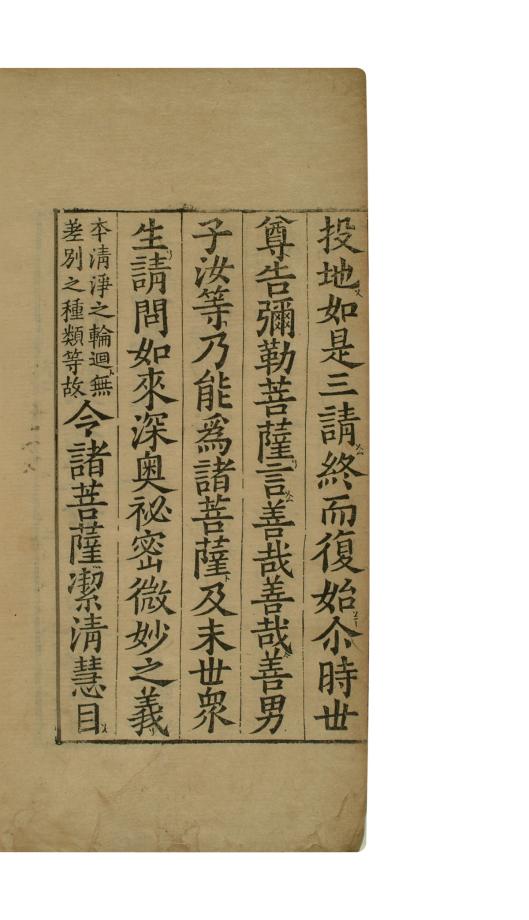 投地如是三請終而復始尒時世
尊告彌勒菩薩言善哉善哉善男
子汝等乃能爲諸菩薩及末世衆
生請問如來深奧祕密微妙之義
本清淨之輪迴無
差別之種類等故
令諸菩薩潔清慧目